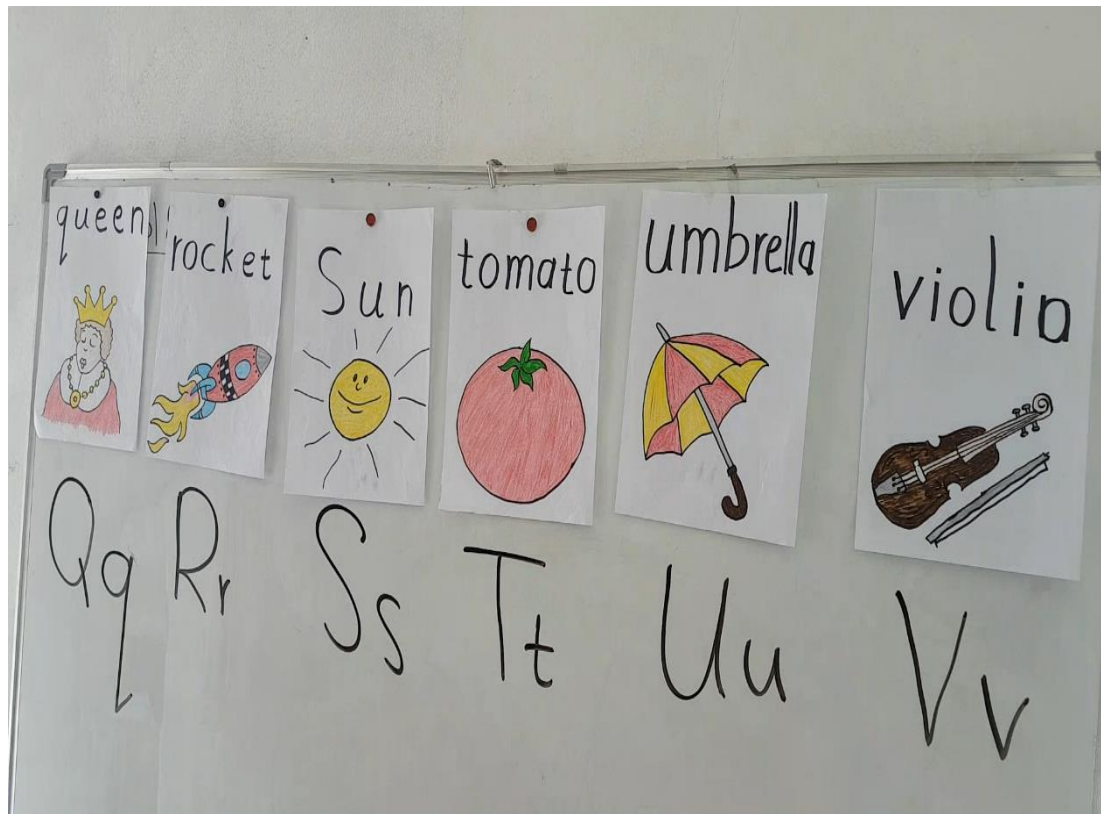 queen
rocket
Sun
tomato
umbrella
violin
Qq
Rr
Ss
Tt
Uu
Vv